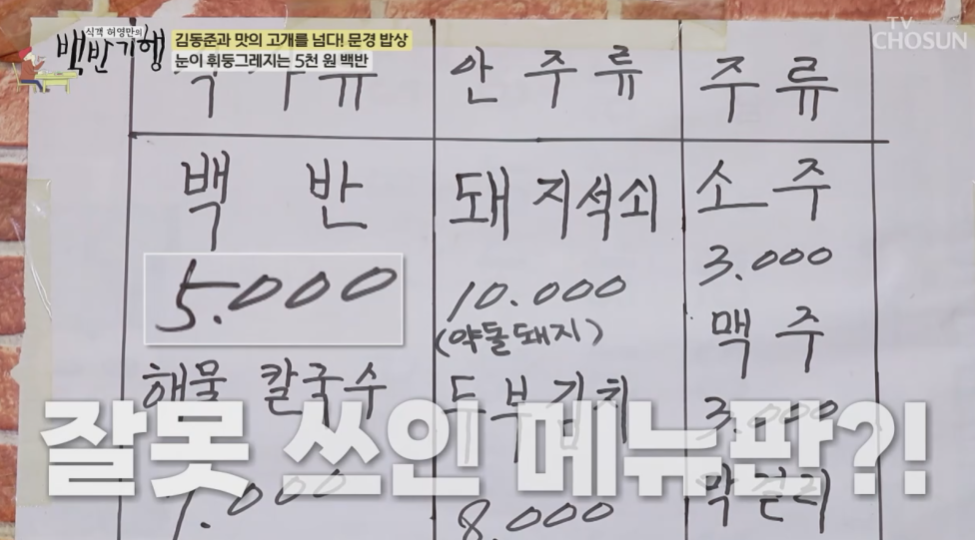 식객 허영만의
백반기행
김동준과 맛의 고개를 넘다! 문경 밥상
눈이 휘둥그레지는 5천 원 백반
TV
CHOSUN
안 주 류
주 류
백 반
돼 지석쇠
소 주
5.000
10.000
3.000
(약돌돼지)
맥 주
해물 칼국수
두부김치
3.000
잘못 쓰인 메뉴판?!
8.000
막걸리